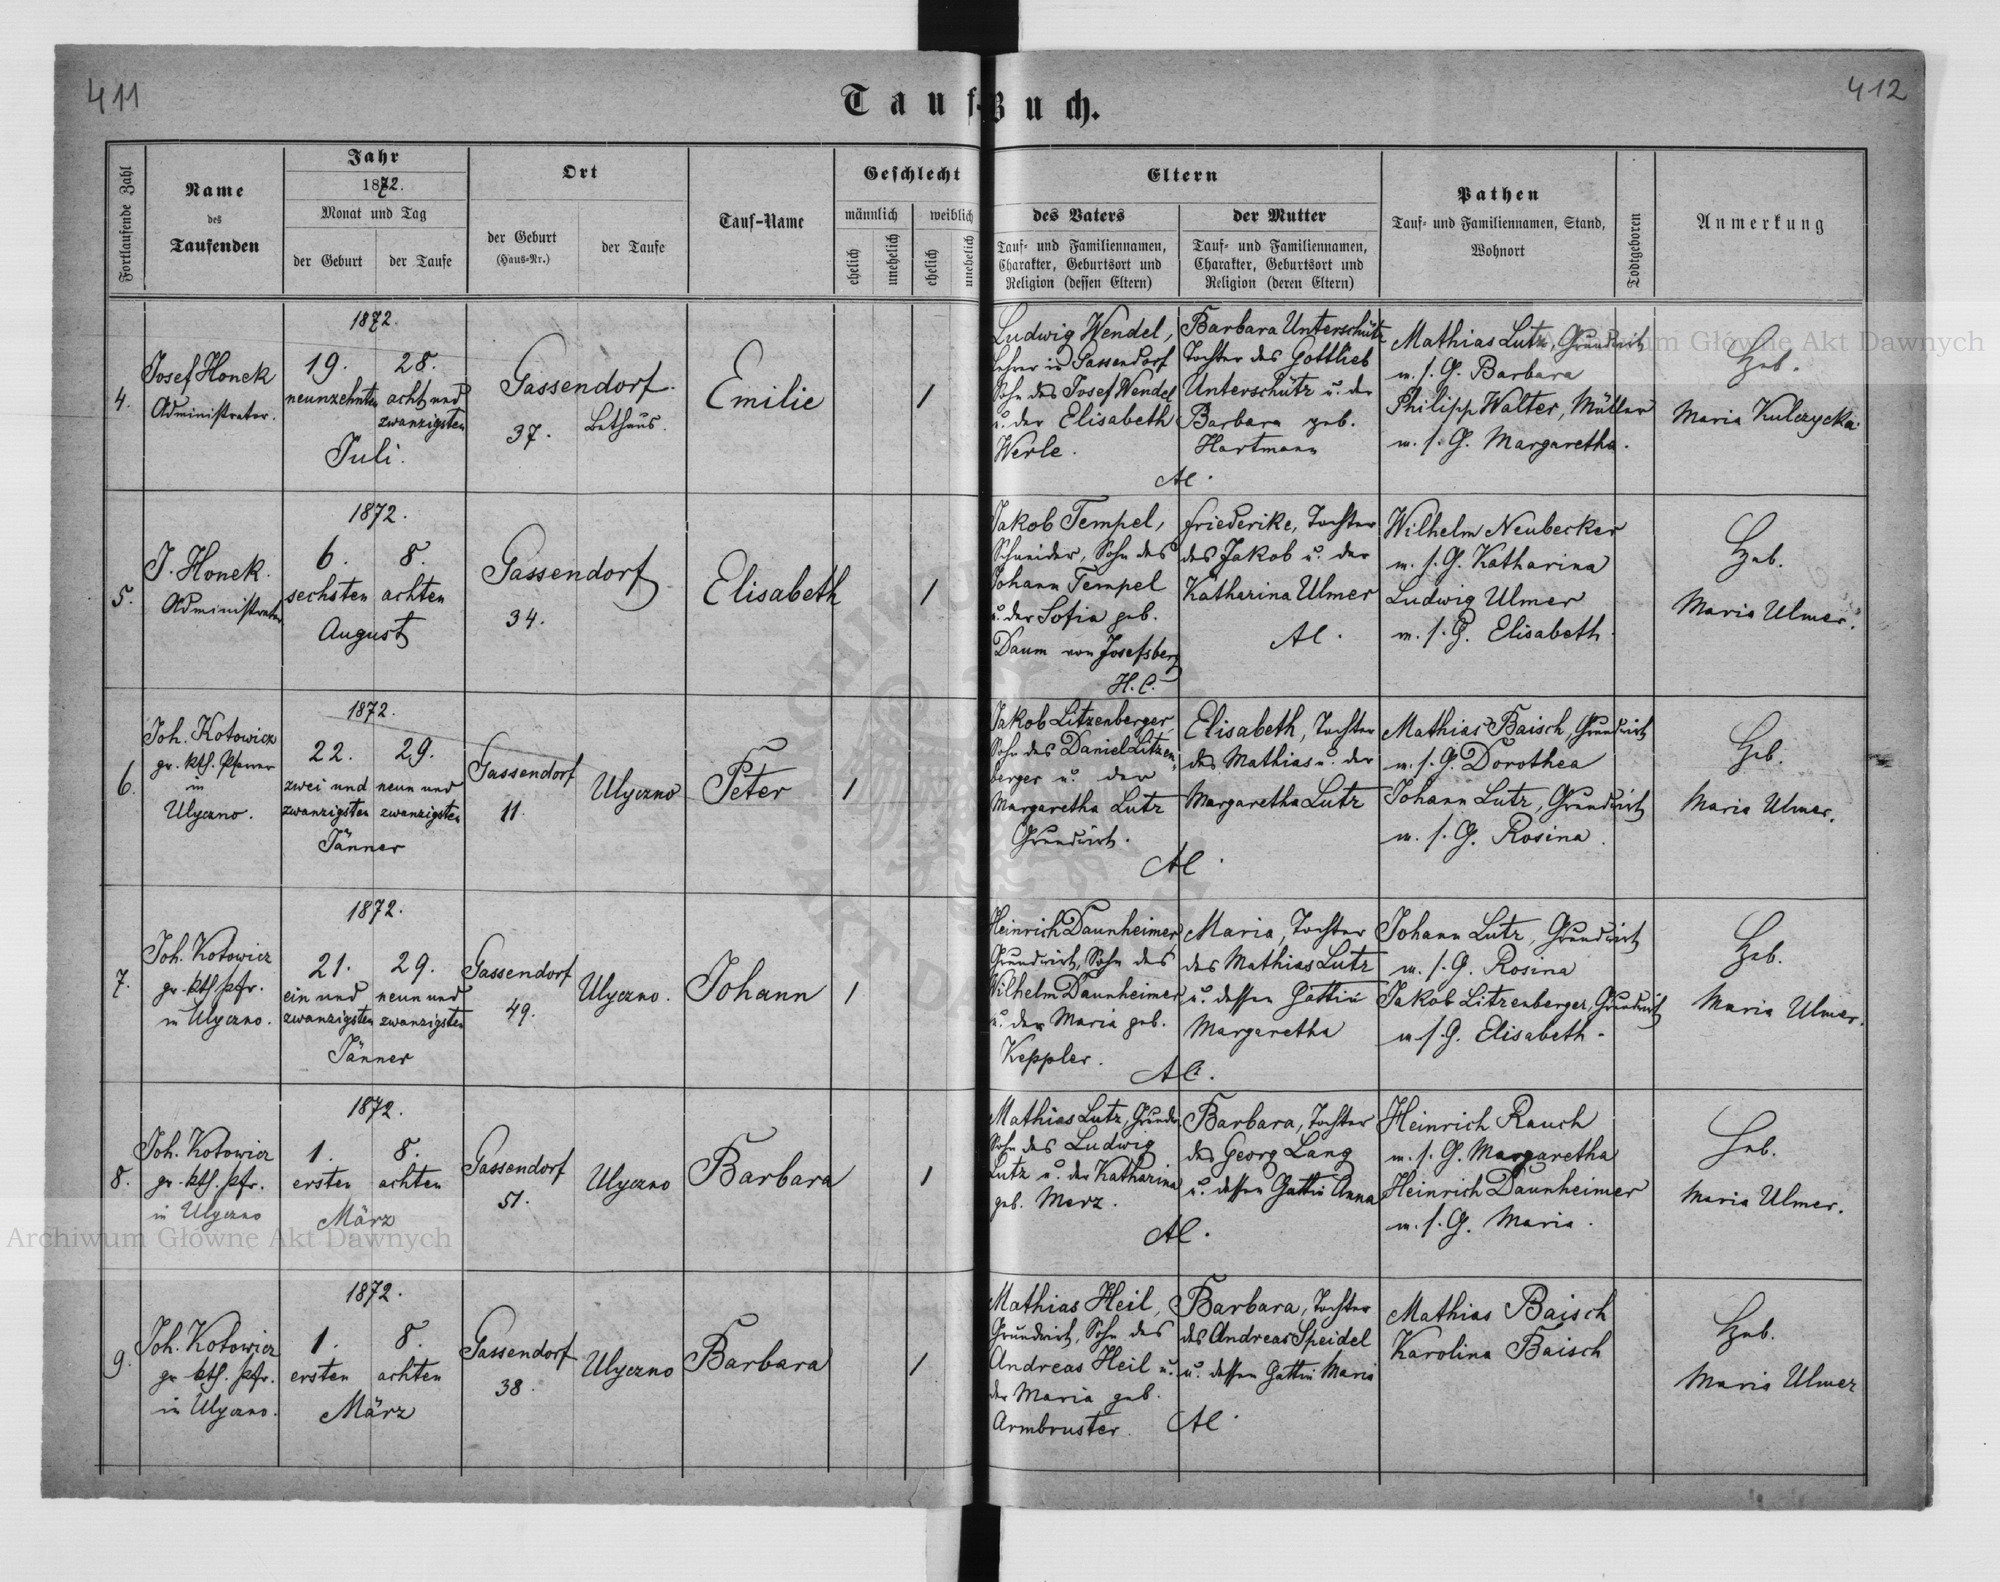 411
412
Tauf-Buch.
Fortlaufende Zahl
Name
des
Taufenden
Jahr
1872.
Monat und Tag
der Geburt
der Taufe
Ort
der Geburt
(Haus-Nr.)
der Taufe
Tauf-Name
Geschlecht
männlich
weiblich
ehelich
unehelich
ehelich
unehelich
Eltern
des Vaters
Tauf- und Familiennamen,
Charakter, Geburtsort und
Religion (dessen Eltern)
der Mutter
Tauf- und Familiennamen,
Charakter, Geburtsort und
Religion (deren Eltern)
Pathen
Tauf- und Familiennamen, Stand,
Wohnort
Todtgeboren
Anmerkung
4.
Josef Honek
Administrator.
1872.
19.
neunzehnten
28.
acht und
zwanzigsten
Juli.
Gassendorf.
37.
Bethaus.
Emilie
1
Ludwig Wendel,
Lehrer in Gassendorf
Sohn des Josef Wendel
u. der Elisabeth
Werle.
Barbara Unterschütz
Tochter des Gottlieb
Unterschütz u. der
Barbara geb.
Hartmann
AC.
Mathias Lutz, Grundwirt
m. s. G. Barbara
Philipp Walter, Müller
m. s. G. Margaretha.
Heb.
Maria Kulczycka.
5.
J. Honek.
Administrator
1872.
6.
sechsten
8.
achten
August
Gassendorf
34.
Elisabeth
1
Jakob Tempel,
Schneider, Sohn des
Johann Tempel
u. der Sofia geb.
Daum von Josefsberg
H.C.
Friederike, Tochter
des Jakob u. der
Katharina Ulmer
AC.
Wilhelm Neubecker
m. s. G. Katharina
Ludwig Ulmer
m. s. G. Elisabeth.
Heb.
Maria Ulmer.
6.
Joh. Kotowicz
gr. kth. Pfarrer
in
Ulyczno.
1872.
22.
zwei und
zwanzigsten
29.
neun und
zwanzigsten
Jänner
Gassendorf
11.
Ulyczno
Peter
1
Jakob Litzenberger,
Sohn des Daniel Litzen-
berger u. der
Margaretha Lutz
Grundwirt.
Elisabeth, Tochter
des Mathias u. der
Margaretha Lutz
AC.
Mathias Baisch, Grundwirt
m. s. G. Dorothea
Johann Lutz, Grundwirt
m. s. G. Rosina.
Heb.
Maria Ulmer.
7.
Joh. Kotowicz
gr. kth. Pfr.
in Ulyczno.
1872.
21.
ein und
zwanzigsten
29.
neun und
zwanzigsten
Jänner
Gassendorf
49.
Ulyczno.
Johann
1
Heinrich Daunheimer
Grundwirt, Sohn des
Wilhelm Daunheimer
u. der Maria geb.
Keppler.
Maria, Tochter
des Mathias Lutz
u. dessen Gattin
Margaretha
AC.
Johann Lutz, Grundwirt
m. s. G. Rosina
Jakob Litzenberger, Grundwirt
m. s. G. Elisabeth.
Heb.
Maria Ulmer.
8.
Joh. Kotowicz
gr. kth. Pfr.
in Ulyczno
1872.
1.
ersten
8.
achten
März
Gassendorf
51.
Ulyczno
Barbara
1
Mathias Lutz,
Sohn des Ludwig
Lutz u. der Katharina
geb. Merz.
Barbara, Tochter
des Georg Lang
u. dessen Gattin Anna
AC.
Heinrich Rauch
m. s. G. Margaretha
Heinrich Daunheimer
m. s. G. Maria.
Heb.
Maria Ulmer.
9.
Joh. Kotowicz
gr. kth. Pfr.
in Ulyczno.
1872.
1.
ersten
8.
achten
März
Gassendorf
38.
Ulyczno
Barbara
1
Mathias Heil,
Grundwirt, Sohn des
Andreas Heil u.
der Maria geb.
Armbruster.
Barbara, Tochter
des Andreas Speidel
u. dessen Gattin Maria
AC.
Mathias Baisch
Karolina Baisch
Heb.
Maria Ulmer
Archiwum Główne Akt Dawnych
Archiwum Główne Akt Dawnych